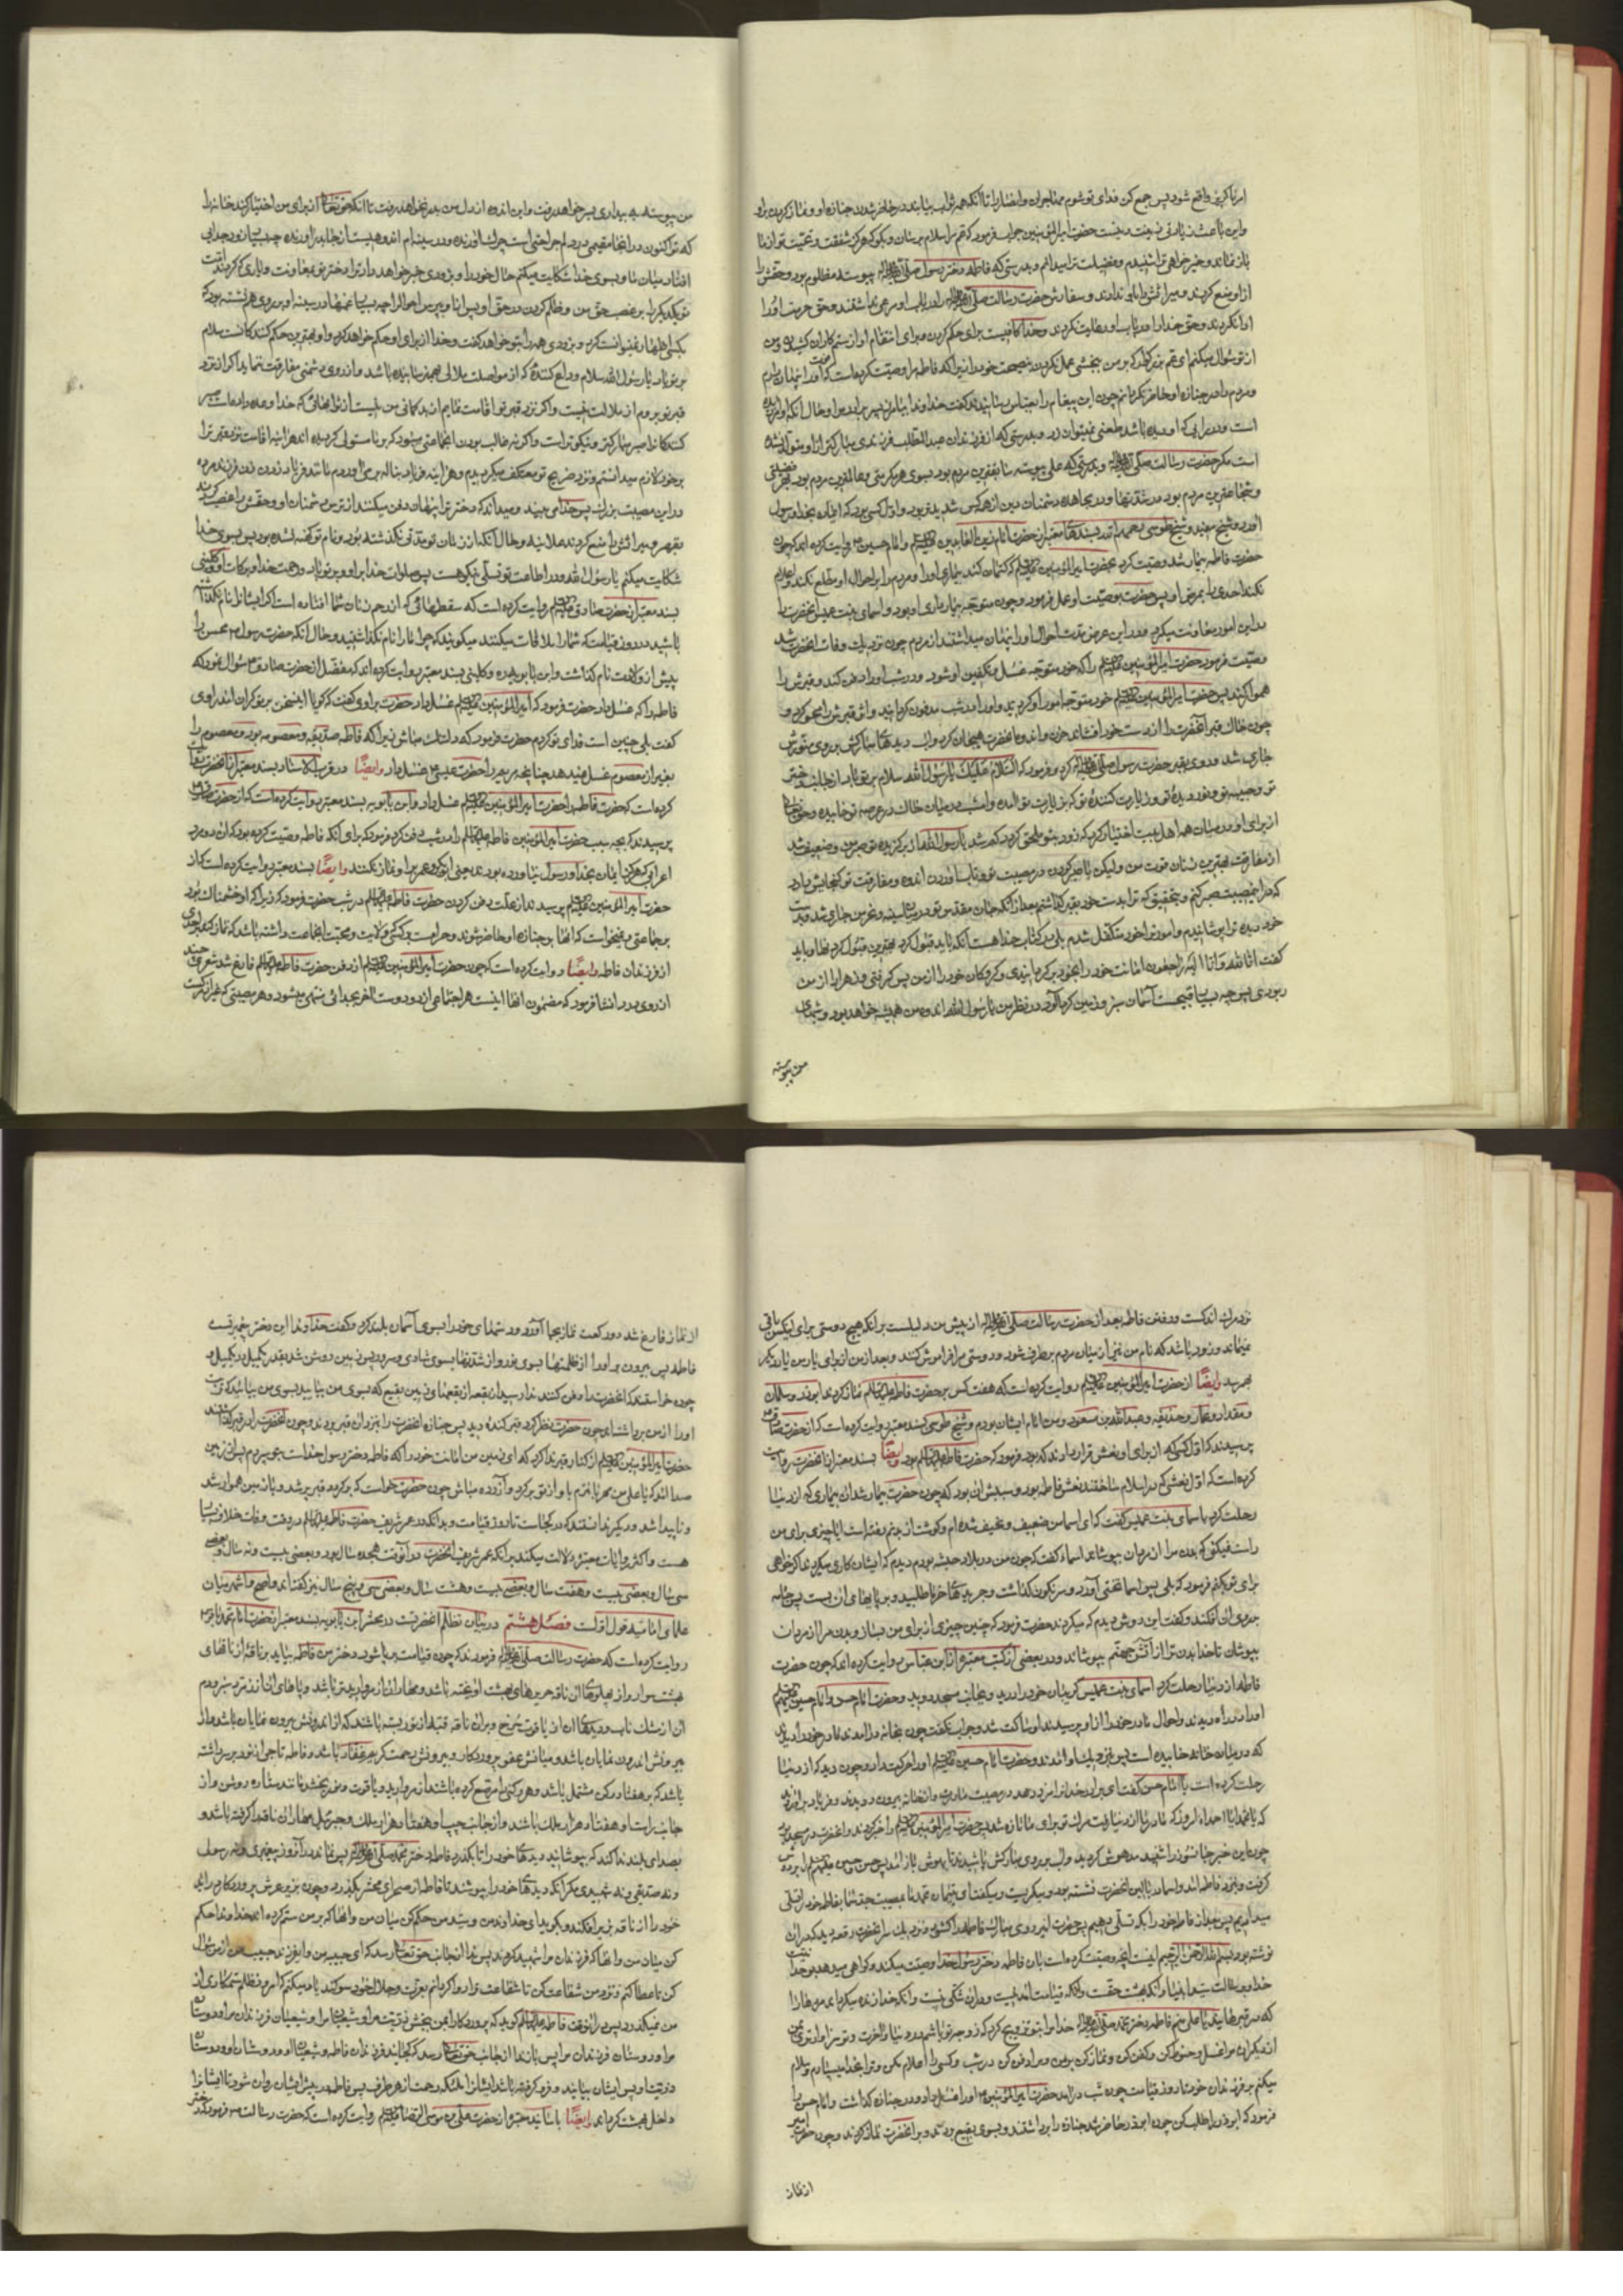 امر ناگزیر واقع شود پس جمع کن فدای تو شوم مهاجران و انصار را تا آنکه همه ثواب بیابند در حاضر شدن جنازه او و نماز کردن براو
و این باعث زیادتی زینت دینست حضرت امیرالمؤمنین جواب فرمود که عم مرا سلام برسان و بگو که هرگز شفقت و محبت تو از ما
باز نماند و خیرخواهی ترا شنیدم و فضیلت ترا میدانم و بدرستی که فاطمه دختر رسول صلی الله علیه واله پیوسته مظلوم بود و حقش را
از او منع کردند و میراثش را باو ندادند و سفارش حضرت رسالت صلی الله علیه واله را در باب او مرعی نداشتند و حق حرمت او را
ادا نکردند و حق خدا را در باب او رعایت نکردند و خدا کافیست برای حکم کردن و برای انتقام او از ستمکاران کشیدن و من
از تو سؤال میکنم ای عم بزرگوار که بر من ببخشی عمل نکردن بنصیحت خود را زیرا که فاطمه مرا وصیت کرده است که امر او را پنهان دارم
و مردم را در جنازه او حاضر نگردانم چون این پیغام را بعباس رسانیدند گفت خداوند بیامرزد پسر برادر مرا و حال آنکه او آمرزیده
است و در رایی که او دیده باشد طعنی نمیتوان زد و بدرستی که از فرزندان عبدالمطلب فرزندی مبارکتر از او متولد نشده
است مگر حضرت رسالت صلی الله علیه واله و بدرستی که علی پیوسته سابقترین مردم بود بسوی هر مکرمتی و عالمترین مردم بود بهر فضیلتی
و شجاعترین مردم بود در شدتها و در مجاهده دشمنان دین از همه کس شدیدتر بود و اول کسی بود که ایمان بخدا و رسول
آورد و شیخ مفید و شیخ طوسی رحمهم الله بسندهای معتبر از حضرت امام زین العابدین علیه السلام و امام حسین ع روایت کرده اند که چون
حضرت فاطمه بیمار شد وصیت کرد بحضرت امیرالمؤمنین علیه السلام که کتمان کند بیماری او را و مردم را بر احوال او مطلع نکند و اعلام
نکند احدی را بمرض او پس حضرت بوصیت او عمل فرمود و خود متوجه بیمارداری او بود و اسمای بنت عمیس آنحضرت را
در این امور معاونت میکرد و در این عرض مدت احوال او را پنهان میداشتند از مردم چون نزدیک وفات آنحضرت شد
وصیت فرمود حضرت امیرالمؤمنین علیه السلام را که خود متوجه غسل و تکفین او شود و در شب او را دفن کند و قبرش را
هموار کند پس حضرت امیرالمؤمنین علیه السلام خود متوجه امور او گردید و او را در شب مدفون گردانید و اثر قبرش را محو کرد و
چون خاک قبر آنحضرت را از دست خود افشاند حزن و اندوه آنحضرت هیجان کرد و آب دیدهای مبارکش بر روی منورش
جاری شد و روی بقبر حضرت رسول صلی الله علیه واله کرد و فرمود که السلام علیک یا رسول الله سلام بر تو باد از جانب دختر
تو و حبیبه تو و نور دیده تو و زیارت کننده تو که بزیارت تو آمده و امشب در میان خاک در عرصه تو خوابیده و حق تعالی
از برای او در میان همه اهل بیت اختیار کرد که زود بتو ملحق گردد کم شد یا رسول الله از برگزیده تو صبر من و ضعیف شد
از مفارقت بهترین زنان قوت من ولیکن با صبر کردن در مصیبت تو و تاب آوردن اندوه مفارقت تو گنجایش دارد
که در این مصیبت صبر کنم و بتحقیق که ترا بدست خود بقبر گذاشتم بعد از آنکه جان مقدس تو در میان سینه و نحر من جاری شد و بدست
خود دیده ترا پوشانیدم و امور ترا خود متکفل شدم بلی در کتاب خدا هست آنکه باید قبول کرد بهترین قبول کردنها و باید
گفت انا لله وانا الیه راجعون امانت خود را بخود برگردانیدی و گروگان خود را از من پس گرفتی و زهرا را از من
ربودی پس چه بسیار قبیحست آسمان سبز و زمین گردآلود در نظر من یا رسول الله اندوه من همیشه خواهد بود و شبهای
من پیوسته
من پیوسته به بیداری بسر خواهد رفت و این اندوه از دل من بدر نخواهد رفت تا آنکه حق تعالی از برای من اختیار کند خانه را
که تو اکنون در آنجا مقیمی در دلم جراحتی است چرک آورنده و در سینه ام اندوهیست از جا بدر آورنده چه بسیار زود جدایی
افتاد میان ما و بسوی خدا شکایت میکنم حال خود را و بزودی خبر خواهد داد ترا دختر تو بمعاونت و یاری کردن امت
تو یکدیگر را بر غصب حق من و ظلم کردن در حق او پس از او بپرس احوال را چه بسیار غمها در سینه او بر روی هم نشسته بود که
بکسی اظهار نمیتوانست کرد و بزودی همه را بتو خواهد گفت و خدا از برای او حکم خواهد کرد و او بهترین حکم کنندگانست سلام
بر تو باد یا رسول الله سلام وداع کننده که از مواصلت ملالی بهم نرسانیده باشد و از روی دشمنی مفارقت ننماید اگر از نزد
قبر تو بروم از ملالت نیست و اگر نزد قبر تو اقامت نمایم از بدگمانی من نیست از ثوابهائی که خدا وعده داده است صبر
کنندگانرا صبر مبارکتر و نیکوتر است و اگر نه غالب بودن آنجماعتی میبود که بر ما مستولی گردیده اند هر آینه اقامت نزد قبر ترا
بر خود لازم میدانستم و نزد ضریح تو معتکف میگردیدم و هر آینه فریاد بناله برمی آوردم مانند فریاد زدن زن فرزند مرده
در این مصیبت بزرگ پس خدا می بیند و میداند که دختر ترا پنهان دفن میکنم از ترس دشمنان او و حقش را غصب کردند
بقهر و میراثش را منع کردند علانیه و حال آنکه از زمان تو مدتی نگذشته بود و نام تو کهنه نشده بود پس بسوی خدا
شکایت میکنم یا رسول الله و در اطاعت تو تسلی نیکو هست پس صلوات خدا بر او و بر تو باد و رحمت خدا و برکات او و کلینی
بسند معتبر از حضرت صادق علیه السلام روایت کرده است که سقطهائی که از رحم زنان شما افتاده است اگر ایشان را نام نگذاشته
باشید در روز قیامت که شما را ملاقات میکنند میگویند که چرا ما را نام نگذاشتید و حال آنکه حضرت رسول ص محسن را
پیش از ولادت نام گذاشت و ابن بابویه و کلینی بسند معتبر روایت کرده اند که مفضل از حضرت صادق ع سؤال نمود که
فاطمه را که غسل داد حضرت فرمود که امیرالمؤمنین علیه السلام غسل داد حضرت براوی گفت که گویا این سخن بر تو گران آمد راوی
گفت بلی چنین است فدای تو گردم حضرت فرمود که دلتنگ مباش زیرا که فاطمه صدیقه و معصومه بود و معصوم را
بغیر از معصوم غسل نمیدهد چنانچه مریم را حضرت عیسی ع غسل داد وایضا در قرب الاسناد بسند معتبر از آنحضرت روایت
کرده است که حضرت فاطمه را حضرت امیرالمؤمنین علیه السلام غسل داد و ابن بابویه بسند معتبر روایت کرده است که از حضرت صادق ع
پرسیدند که بچه سبب حضرت امیرالمؤمنین فاطمه علیها السلام را در شب دفن کرد فرمود که برای آنکه فاطمه وصیت کرده بود که آن دو مرد
اعرابی که هرگز ایمان بخدا و رسول نیاورده بودند یعنی ابوبکر و عمر بر او نماز نکنند وایضا بسند معتبر روایت کرده است که از
حضرت امیرالمؤمنین علیه السلام پرسیدند از علت دفن کردن حضرت فاطمه علیها السلام در شب حضرت فرمود که زیرا که او خشمناک بود
بر جماعتی و نمیخواست که آنها بر جنازه او حاضر شوند و حرامست بر کسی که ولایت و محبت آنجماعت داشته باشد که نماز کند بر احدی
از فرزندان فاطمه وایضا روایت کرده است که چون حضرت امیرالمؤمنین علیه السلام از دفن حضرت فاطمه علیها السلام فارغ شد شعری چند
از روی درد انشا فرمود که مضمون آنها اینست هر اجتماعی از دو دوست آخر بجدائی منتهی میشود و هر مصیبتی که غیر از مرگست
نزد مرگ اندکست و رفتن فاطمه بعد از حضرت رسالت صلی الله علیه واله از پیش من دلیلست بر آنکه هیچ دوستی برای کسی باقی
نمیماند و زود باشد که نام من نیز از میان مردم برطرف شود و دوستی مرا فراموش کنند و بعد از من از برای یار من یار دیگر
بهم رسد وایضا از حضرت امیرالمؤمنین علیه السلام روایت کرده است که هفت کس بر حضرت فاطمه علیها السلام نماز کردند ابوذر و سلمان
و مقداد و عمار و حذیفه و عبدالله بن مسعود و من امام ایشان بودم و شیخ طوسی بسند معتبر روایت کرده است که از حضرت صادق ع
پرسیدند که اول کسی که از برای او نعش قرار دادند که بود فرمود که حضرت فاطمه علیها السلام بود وایضا بسند معتبر از آنحضرت روایت
کرده است که اول نعشی که در اسلام ساختند نعش فاطمه بود و سببش آن بود که چون حضرت بیمار شد آن بیماری که از دنیا
رحلت کرد باسمای بنت عمیس گفت که ای اسما من ضعیف و نحیف شده ام و گوشت از بدنم رفته است آیا چیزی برای من
راست نمیکنی که بدن مرا از مردان بپوشاند اسماء گفت که چون من در بلاد حبشه بودم دیدم که ایشان کاری میکردند اگر خواهی
برای تو بکنم فرمود که بلی پس اسما تختی آورد و سرنگون گذاشت و جریدهای خرما طلبید و بر پایهای آن بست پس جامه
بر روی آن افکند و گفت این روش دیدم که میکردند حضرت فرمود که چنین چیزی از برای من بساز و بدن مرا از مردان
بپوشان تا خدا بدن ترا از آتش جهنم بپوشاند و در بعضی از کتب معتبره از ابن عباس روایت کرده اند که چون حضرت
فاطمه از دنیا رحلت کرد اسمای بنت عمیس گریبان خود را درید و بجانب مسجد دوید و حضرت امام حسن و امام حسین علیهما السلام
او را در راه دیدند و احوال مادر خود را از او پرسیدند او ساکت شد و جواب نگفت چون بخانه درآمدند مادر خود را دیدند
که در میان خانه خوابیده است پس نزدیک او آمدند و حضرت امام حسین علیه السلام او را حرکت داد و چون دید که از دنیا
رحلت کرده است با امام حسن گفت ای برادر خدا ترا مزد دهد در مصیبت مادر و از خانه بیرون دویدند و فریاد برآوردند
که یا محمدا یا احمدا امروز که مادر ما از دنیا رفت مرگ تو برای ما تازه شد پس حضرت امیرالمؤمنین علیه السلام را خبر کردند و آنحضرت در مسجد بود
چون این خبر جانسوز را شنید مدهوش گردید و آب بر روی مبارکش پاشیدند تا بهوش باز آمد پس حسن و حسین علیهما السلام را بر دوش
گرفت و بنزد فاطمه آمد و اسما در بالین آنحضرت نشسته بود و میگریست و میگفت ای یتیمان محمد ما بمصیبت جد شما بفاطمه خود را تسلی
میدادیم پس بعد از فاطمه خود را بکه تسلی دهیم پس حضرت امیر روی مبارک فاطمه را گشود و نزدیک سر آنحضرت رقعه دید که در آن
نوشته بود بسم الله الرحمن الرحیم اینست آنچه وصیت کرده است بآن فاطمه دختر رسول خدا وصیت میکند و گواهی میدهد بوحدانیت
خدا و برسالت سید انبیا و آنکه بهشت حقست و آنکه قیامت آمدنیست و در آن شکی نیست و آنکه خدا زنده میگرداند مردها را
که در قبرهایند یا علی منم فاطمه دختر محمد صلی الله علیه واله خدا مرا بتو تزویج کرد که زوجه تو باشم در دنیا و آخرت و تو سزاوارتری بمن
از دیگران مرا غسل و حنوط کن و کفن کن و نماز کن بر من و مرا دفن کن در شب و کسی را اعلام مکن و ترا بخدا میسپارم و سلام
میکنم بر فرزندان خود تا روز قیامت چون شب درآمد حضرت امیرالمؤمنین ع او را غسل داد و در جنازه گذاشت و امام حسن را
فرمود که ابوذر را طلب کن چون ابوذر حاضر شد جنازه را برداشتند و بسوی بقیع بردند و بر آنحضرت نماز کردند و چون حضرت امیر
از نماز
از نماز فارغ شد دو رکعت نماز بجا آورد و دستهای خود را بسوی آسمان بلند کرد و گفت خداوندا این دختر پیغمبر تست
فاطمه پس بیرون بر او را از ظلمتها بسوی نور و از شدتها بسوی شادی و سرور پس زمین روشن شد بقدر یک میل در یک میل و
چون خواستند که آنحضرت را دفن کنند ندا رسید از بقعه از بقعهای زمین بقیع که بسوی من بیائید بسوی من بیائید که تربت
او را از من برداشته اند چون حضرت نظر کرد قبر کنده دید پس جنازه آنحضرت را بنزد آن قبر بردند و چون آنحضرت را در قبر گذاشتند
حضرت امیرالمؤمنین علیه السلام از کنار قبر ندا کرد که ای زمین من امانت خود را که فاطمه دختر رسول خداست بتو سپردم پس از زمین
صدا آمد که یا علی من مهربانترم باو از تو برگرد و آزرده مباش چون حضرت خواست که برگردد قبر پر شد و با زمین هموار شد
و ناپیدا شد و دیگر ندانستند که در کجاست تا روز قیامت و بدانکه در عمر شریف حضرت فاطمه علیها السلام در وقت وفات خلاف بسیار
هست و اکثر روایات معتبره دلالت میکند بر آنکه عمر شریف آنحضرت در آنوقت هجده سال بود و بعضی بیست و نه سال و بعضی
سی سال و بعضی بیست و هفت سال و بعضی بیست و هشت سال و بعضی سی و پنج سال نیز گفته اند و اصح و اشهر میان
علمای امامیه قول اولست فصل هشتم در بیان تظلم آنحضرتست در محشر ابن بابویه بسند معتبر از حضرت امام محمد باقر ع
روایت کرده است که حضرت رسالت صلی الله علیه واله فرمودند که چون قیامت برپا شود دختر من فاطمه بیاید بر ناقه از ناقهای
بهشت سوار و از پهلوهای آن ناقه حریرهای بهشت آویخته باشد و مهار آن از مروارید تر باشد و پاهای آن از زمرد سبز و دم
آن از مشک ناب و دیدهای آن از یاقوت سرخ و بر آن ناقه قبه از نور بسته باشند که از اندرونش بیرون نمایان باشد و از
بیرونش اندرون نمایان باشد و میانش عفو پروردگار و بیرونش رحمت کریم غفار باشد و فاطمه تاجی از نور بر سر داشته
باشد که بر هفتاد رکن مشتمل باشد و هر رکنی مرصع کرده باشند از مروارید و یاقوت و نور بخشد مانند ستاره روشن و از
جانب راست او هفتاد هزار ملک باشد و از جانب چپ او هفتاد هزار ملک و جبرئیل مهار آن ناقه را گرفته باشد و
بصدای بلند ندا کند که بپوشانید دیدهای خود را تا بگذرد فاطمه دختر محمد صلی الله علیه واله پس نماند در آنروز پیغمبری و نه رسولی
و نه صدیقی و نه شهیدی مگر آنکه دیدهای خود را بپوشند تا فاطمه از صحرای محشر بگذرد و چون بزیر عرش پروردگار درآید
خود را از ناقه بزیر افکند و بگوید ای خداوند من و سید من حکم کن میان من و آنها که بر من ستم کرده اند خداوندا حکم
کن میان من و آنها که فرزندان مرا شهید کردند پس ندا از جانب حق تعالی رسد که ای حبیبه من و ای فرزند حبیب من از من سؤال
کن تا عطا کنم و نزد من شفاعت کن تا شفاعت ترا روا گردانم بعزت و جلال خود سوگند یاد میکنم که امروز ظلم ستمکاری از
من نمیگذرد پس در آنوقت فاطمه علیها السلام گوید که پروردگارا بمن ببخش ذریت مرا و شیعیان مرا و شیعیان فرزندان مرا و دوستان
مرا و دوستان فرزندان مرا پس باز ندا از جانب حق تعالی رسد که کجایند فرزندان فاطمه و شیعیان او و دوستان او و دوستان
ذریت او پس ایشان بیایند و فرو گرفته باشند ایشان را ملائکه رحمت از هر طرف پس فاطمه در پیش ایشان روان شود تا ایشانرا
داخل بهشت گرداند وایضا باسانید معتبره از حضرت علی بن موسی الرضا علیه السلام روایت کرده است که حضرت رسالت ص فرمود که دختر